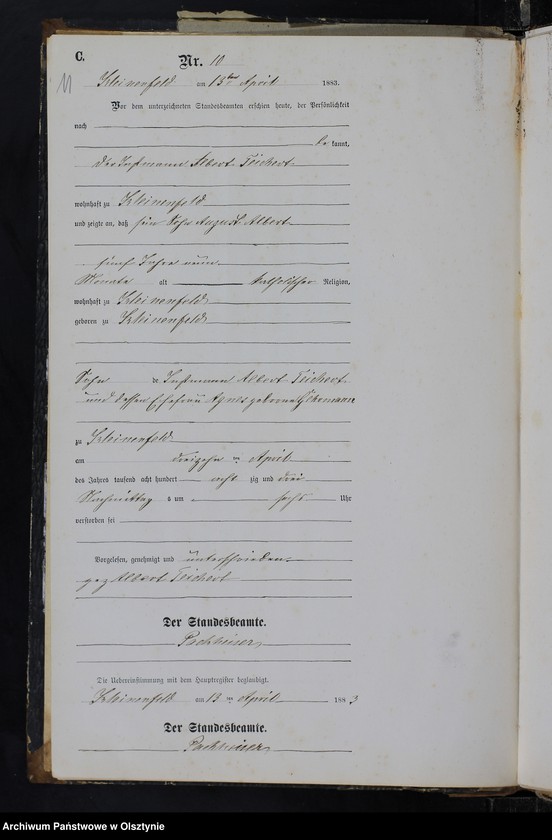 C.
Nr. 10
11
Kleinenfeld am 13ten April 1883.
Vor dem unterzeichneten Standesbeamten erschien heute, der Persönlichkeit
nach
be kannt,
der Instmann Albert Teichert
wohnhaft zu Kleinenfeld
und zeigte an, daß sein Sohn August Albert
fünf Jahre neun
Monate alt katholischer Religion,
wohnhaft zu Kleinenfeld
geboren zu Kleinenfeld
Sohn des Instmann Albert Teichert
und dessen Ehefrau Agnes geborene
zu Kleinenfeld
am dreizehn ten April
des Jahres tausend acht hundert acht zig und drei
Nachmittag s um sechs Uhr
verstorben sei
Vorgelesen, genehmigt und unterschrieben
gez Albert Teichert
Der Standesbeamte.
Die Uebereinstimmung mit dem Hauptregister beglaubigt.
Kleinenfeld am 13 ten April 1883
Der Standesbeamte.
Archiwum Państwowe w Olsztynie